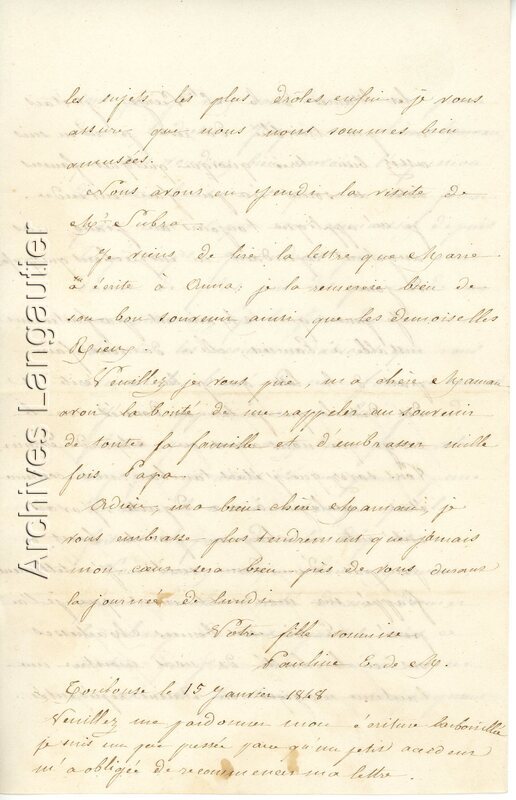 les sujets les plus drôles enfin je vous
assure que nous nous sommes bien
amusées.
Nous avons eu Jeudi la visite de
Mr Subra
Je viens de lire la lettre que Marie
a écrite à Anna; je la remercie bien de
son bon souvenir ainsi que les demoiselles
Rieux.
Veuillez je vous prie, ma chère Maman
avoir la bonté de me rappeler au souvenir
de toute la famille et d'embrasser mille
fois Papa.
Adieu, ma bien chère Maman; je
vous embrasse plus tendrement que jamais
mon cœur sera bien près de vous durant
la journée de lundi
Votre fille soumise
Pauline E. de M.
Toulouse le 15 Janvier 1848
Veuillez me pardonner mon écriture
je suis un peu pressée parce qu'un petit accident
m'a obligée de recommencer ma lettre.
Archives Langautier